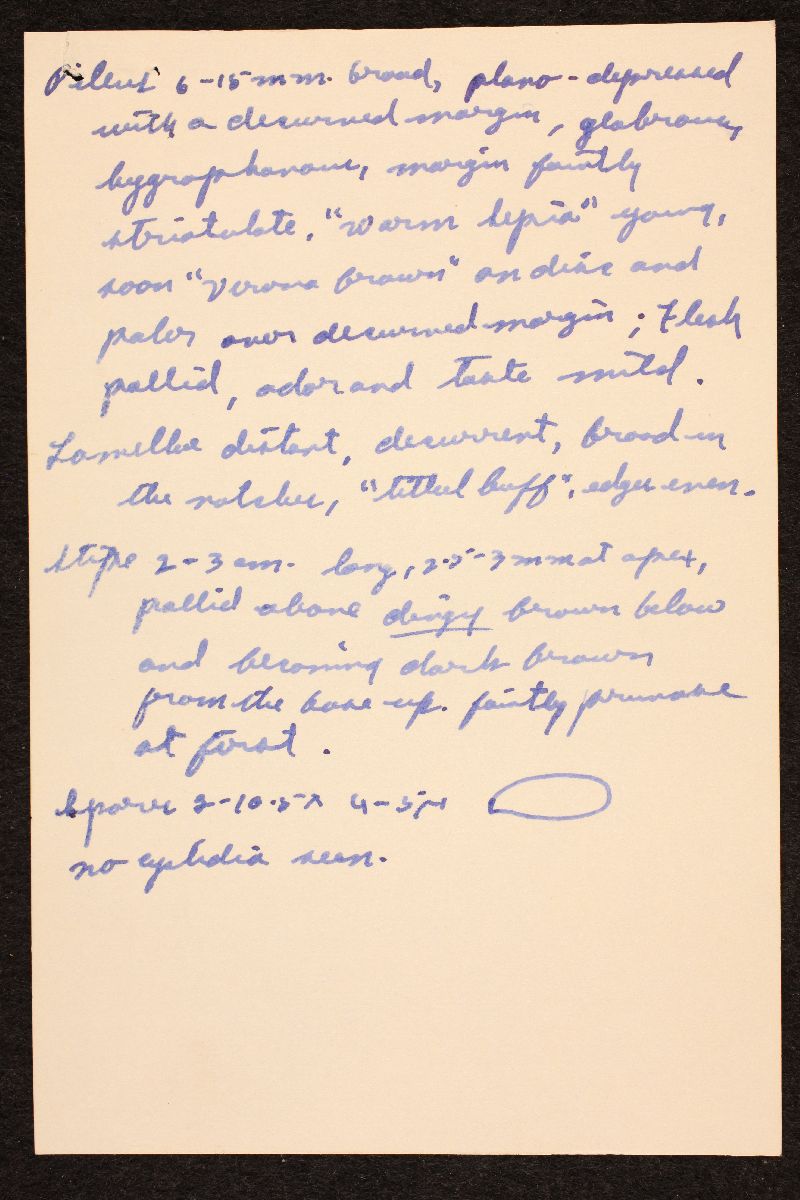 Pileus 6-15 mm. broad, plano-depressed
with a decurved margin, glabrous,
hygrophanous, margin faintly
striatulate, "warm sepia" young,
soon "verona brown" on disc and
paler over decurved margin; Flesh
pallid, odor and taste mild.
Lamellae distant, decurrent, broad in
the notches, "tilleul buff", edges even.
Stipe 2-3 cm. long, 2.5-3 mm at apex,
pallid above dingy brown below
and becoming dark brown
from the base up. faintly pruinose
at first.
Spores -10.5 x 4-5 μ
no cystidia seen.